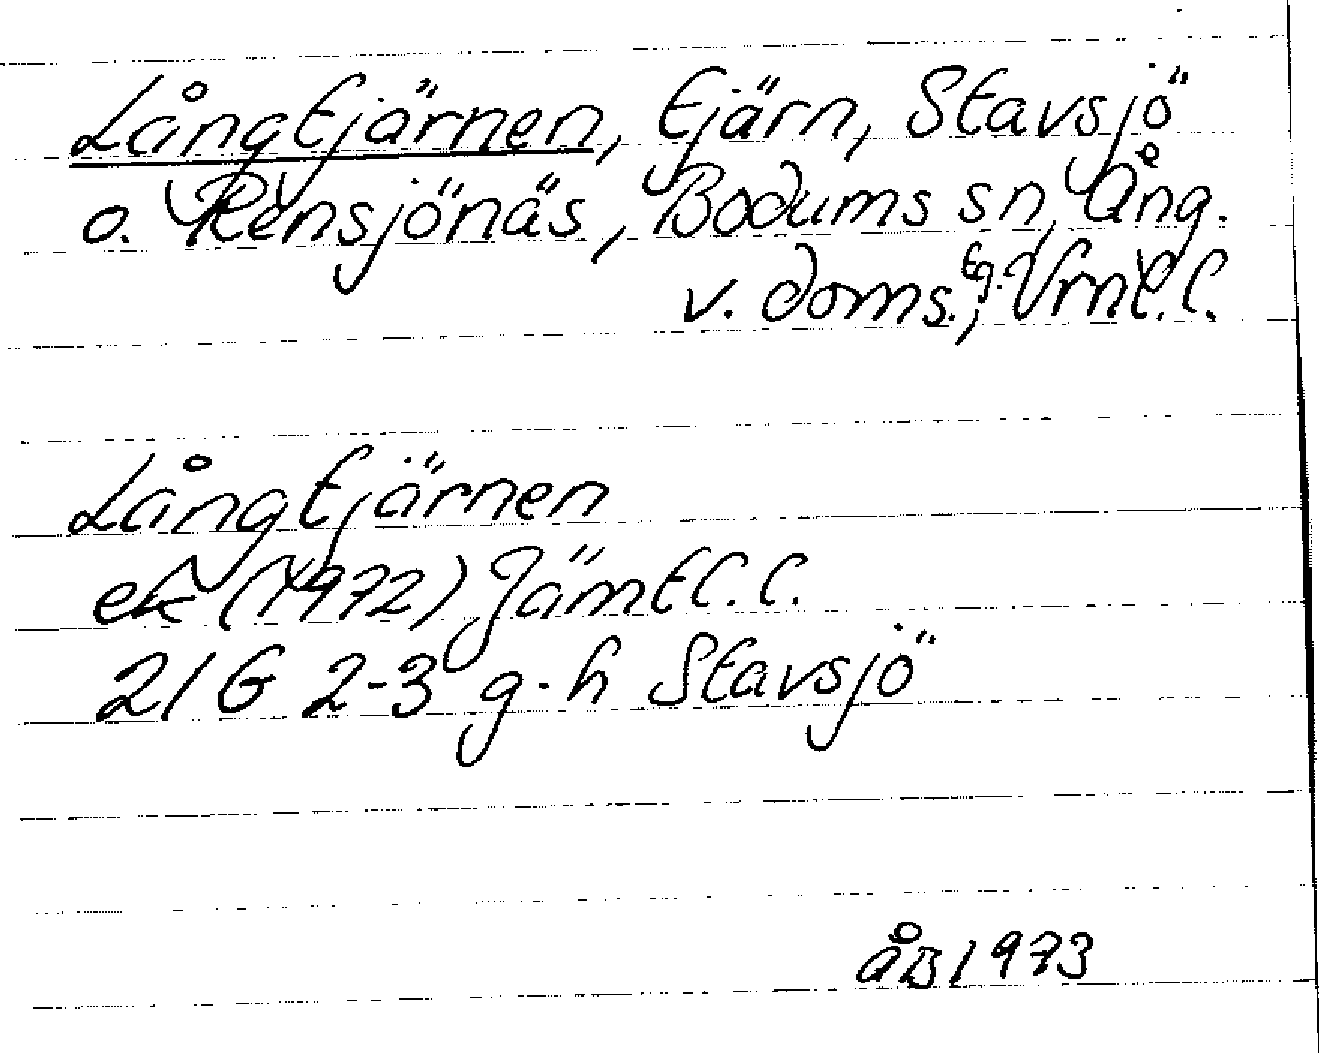 Långtjärnen, tjärn, Stavsjö
o. Rensjönäs, Bodums sn, Ång.
v. doms. tg. Vrnl. l.
Långtjärnen
ek (1972) Jämtl. l.
21 G 2-3 g-h Stavsjö
åB 1973